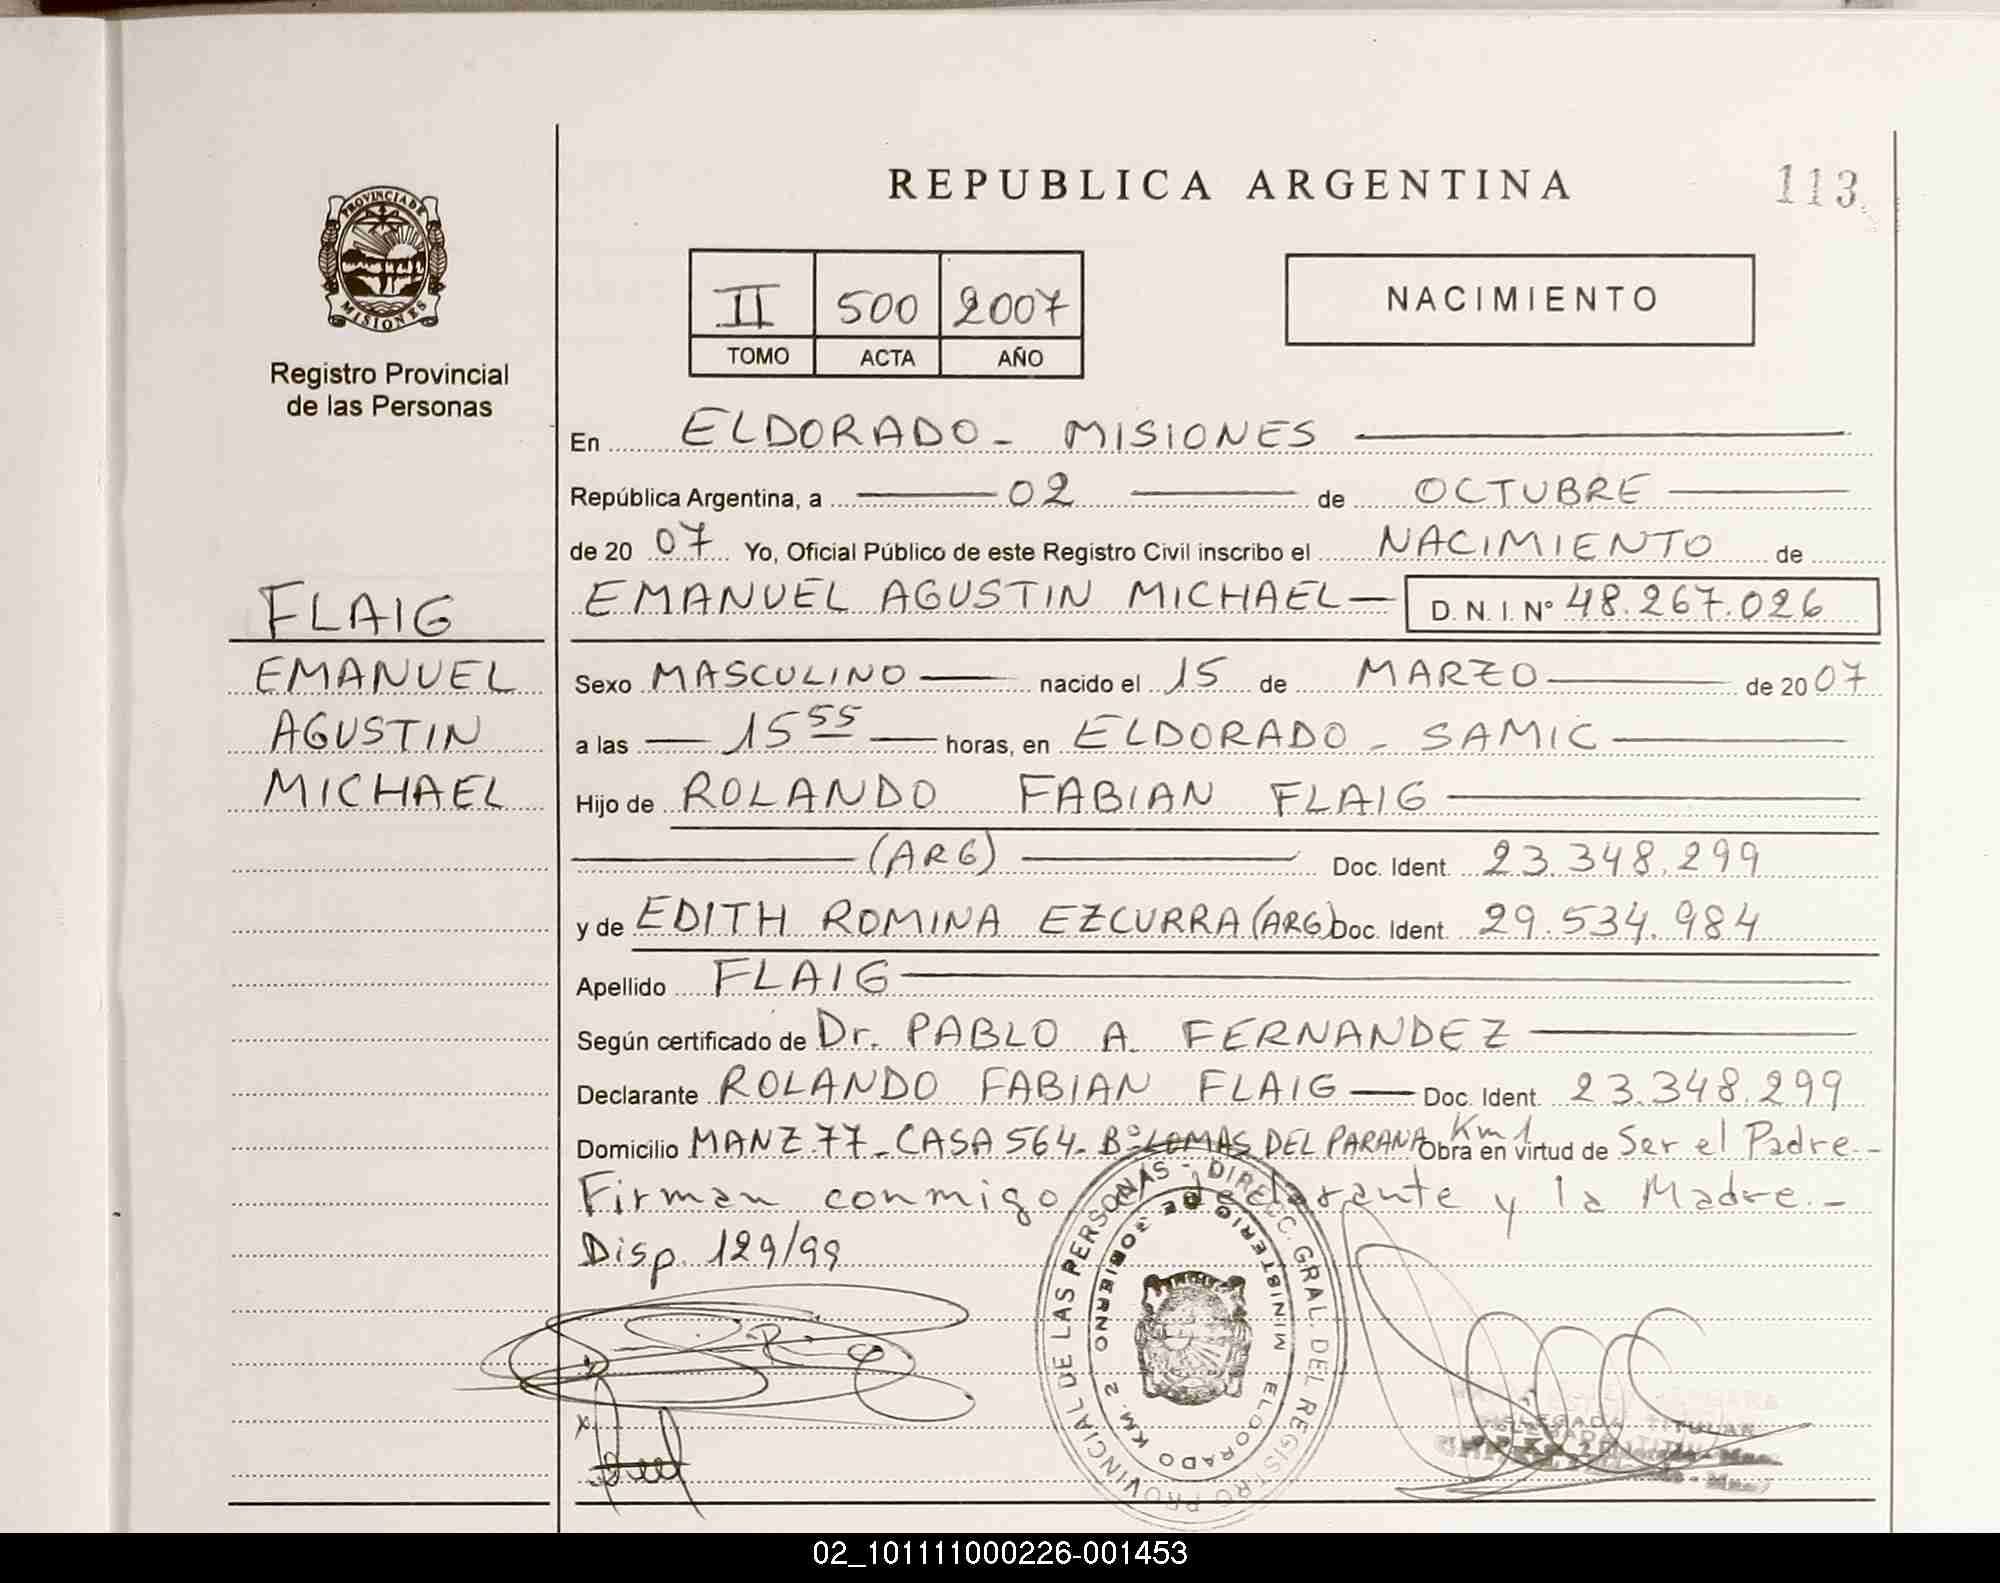 REPUBLICA ARGENTINA
113
PROVINCIA DE
MISIONES
Registro Provincial
de las Personas
II 500 2007
TOMO ACTA AÑO
NACIMIENTO
En ELDORADO - MISIONES
República Argentina, a 02 de OCTUBRE
de 20 07 Yo, Oficial Público de este Registro Civil inscribo el NACIMIENTO de
FLAIG
EMANUEL AGUSTIN MICHAEL D. N. I. Nº 48.267.026
EMANUEL
AGUSTIN
MICHAEL
Sexo MASCULINO nacido el 15 de MARZO de 20 07
a las 15 55 horas, en ELDORADO - SAMIC
Hijo de ROLANDO FABIAN FLAIG
(ARG) Doc. Ident. 23.348.299
y de EDITH ROMINA EZCURRA (ARG) Doc. Ident. 29.534.984
Apellido FLAIG
Según certificado de Dr. PABLO A. FERNANDEZ
Declarante ROLANDO FABIAN FLAIG Doc. Ident. 23.348.299
Domicilio MANZ.77 - CASA 564 - Bº LOMAS DEL PARANA Km 1 Obra en virtud de Ser el Padre.-
Firman conmigo el declarante y la Madre.-
Disp. 129/99
PROVINCIAL DE LAS PERSONAS - DIRECC. GRAL. DEL REGISTRO
MINISTERIO DE GOBIERNO
ELDORADO KM. 2
DELEGADA TITULAR
02_101111000226-001453